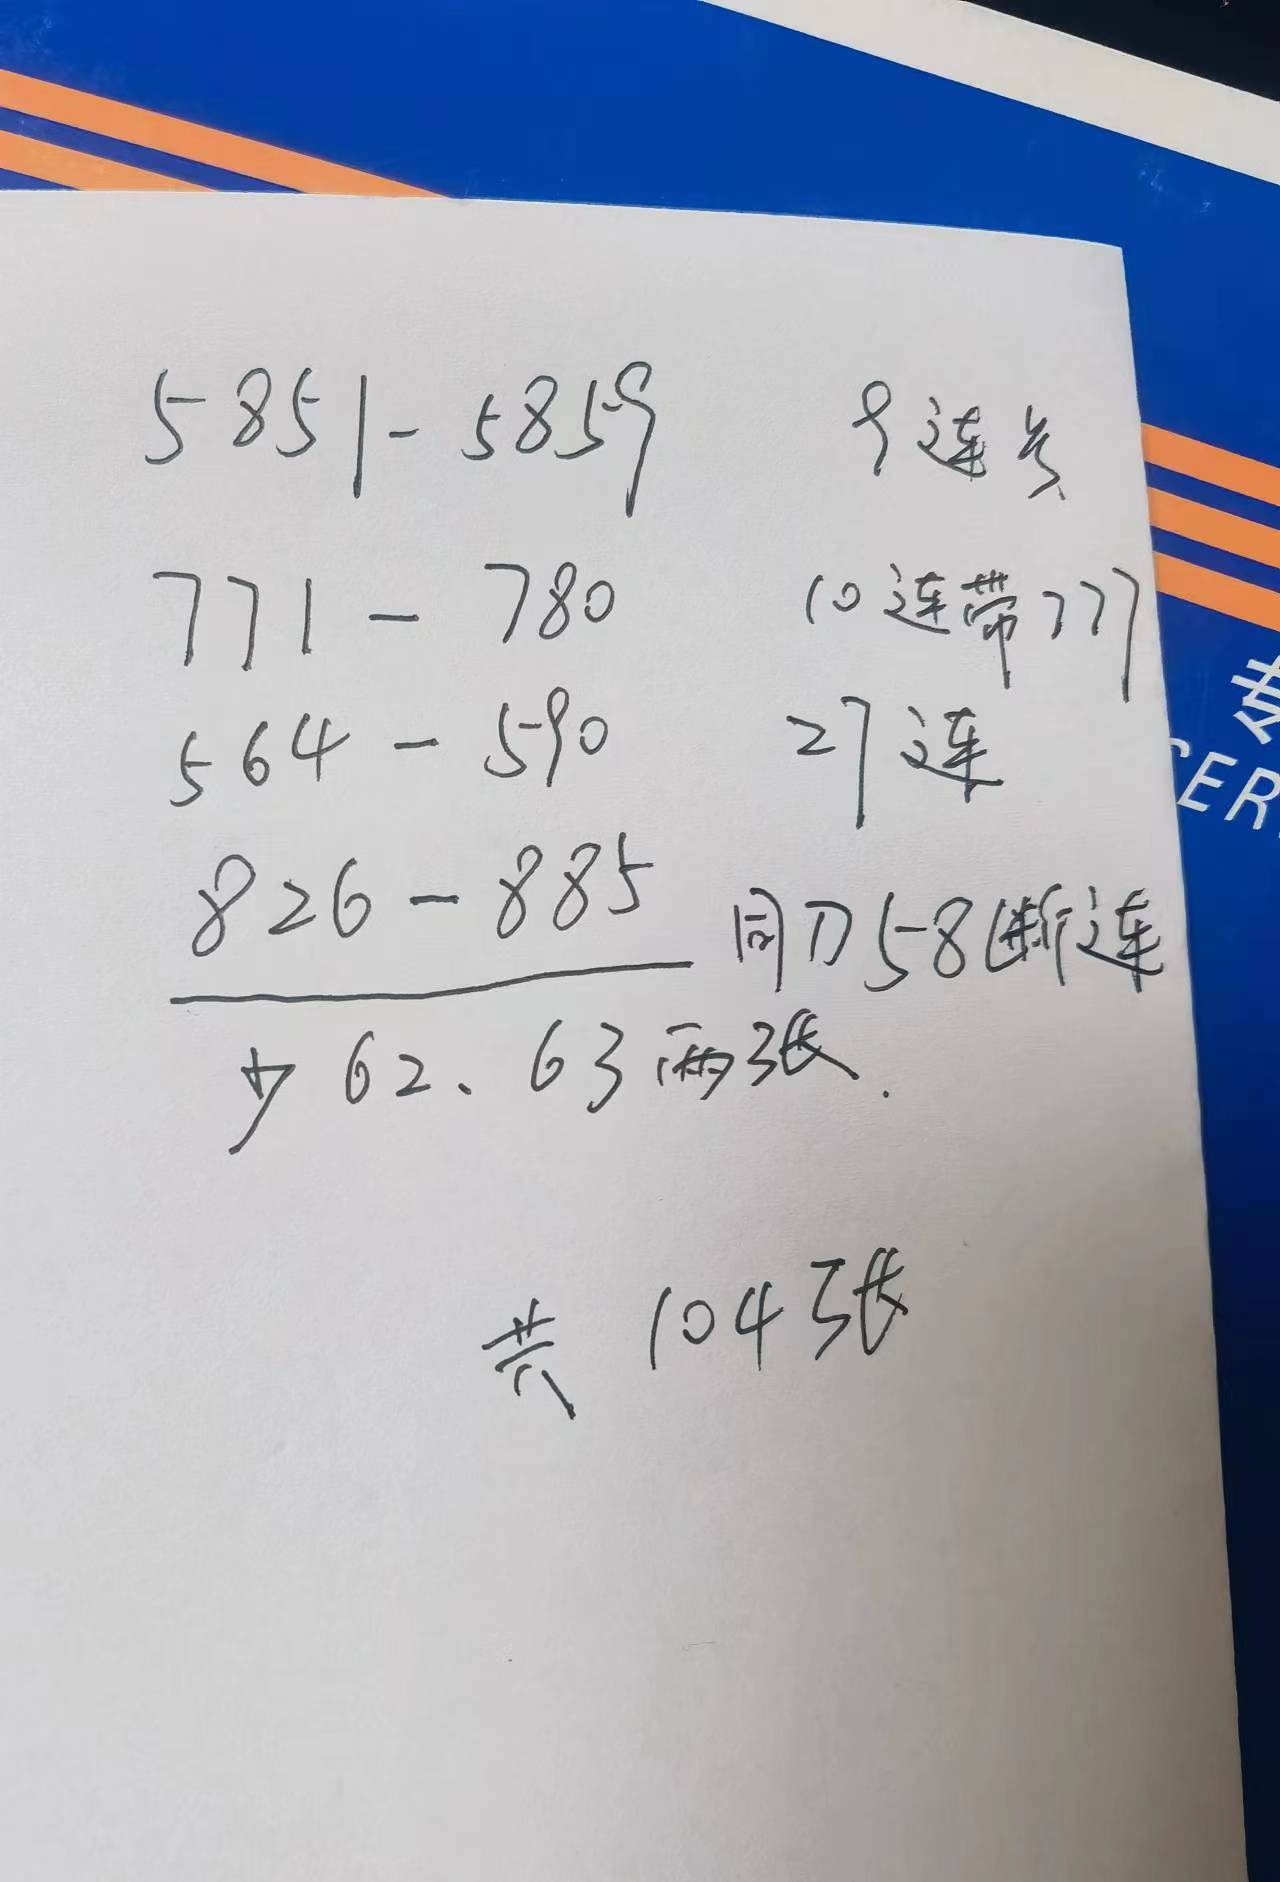 5851-5859 9连号
771-780 10连带777
564-590 27连
826-885 同刀58断连
少62、63两张.
共 104张
CER